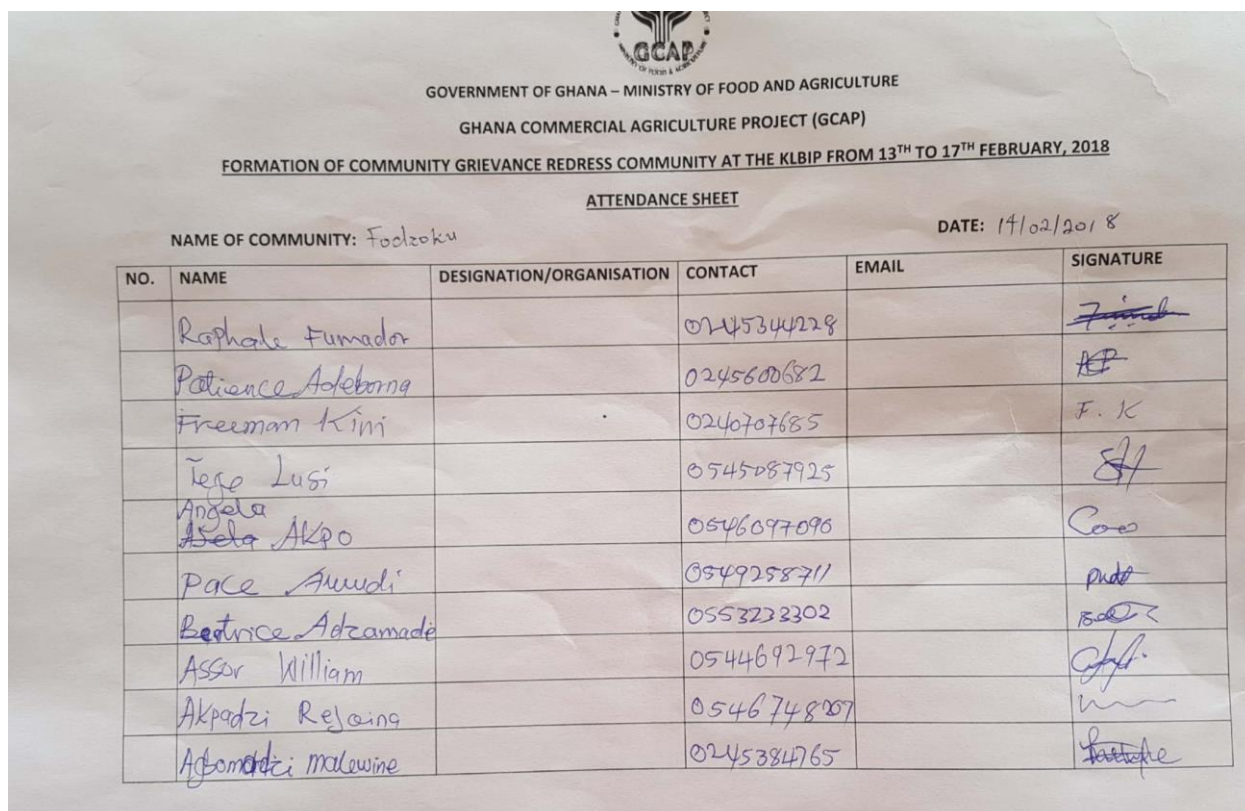 GCAP
MINISTRY OF FOOD & AGRICULTURE
GOVERNMENT OF GHANA – MINISTRY OF FOOD AND AGRICULTURE
GHANA COMMERCIAL AGRICULTURE PROJECT (GCAP)
FORMATION OF COMMUNITY GRIEVANCE REDRESS COMMUNITY AT THE KLBIP FROM 13TH TO 17TH FEBRUARY, 2018
ATTENDANCE SHEET
NAME OF COMMUNITY: Fodzoku DATE: 14/02/2018
NO. NAME DESIGNATION/ORGANISATION CONTACT EMAIL SIGNATURE
Raphale Fumador 0245344228
Patience Adeborna 0245600682
Freeman Kini 0240707685 F. K
Lusi 0545087925
Angela
AKPO 0546097090
Pace 0549258711
Beatrice Adzamade 0553233302
Assor William 0544692972
Akpadzi Rejoing
malewine 0245384765